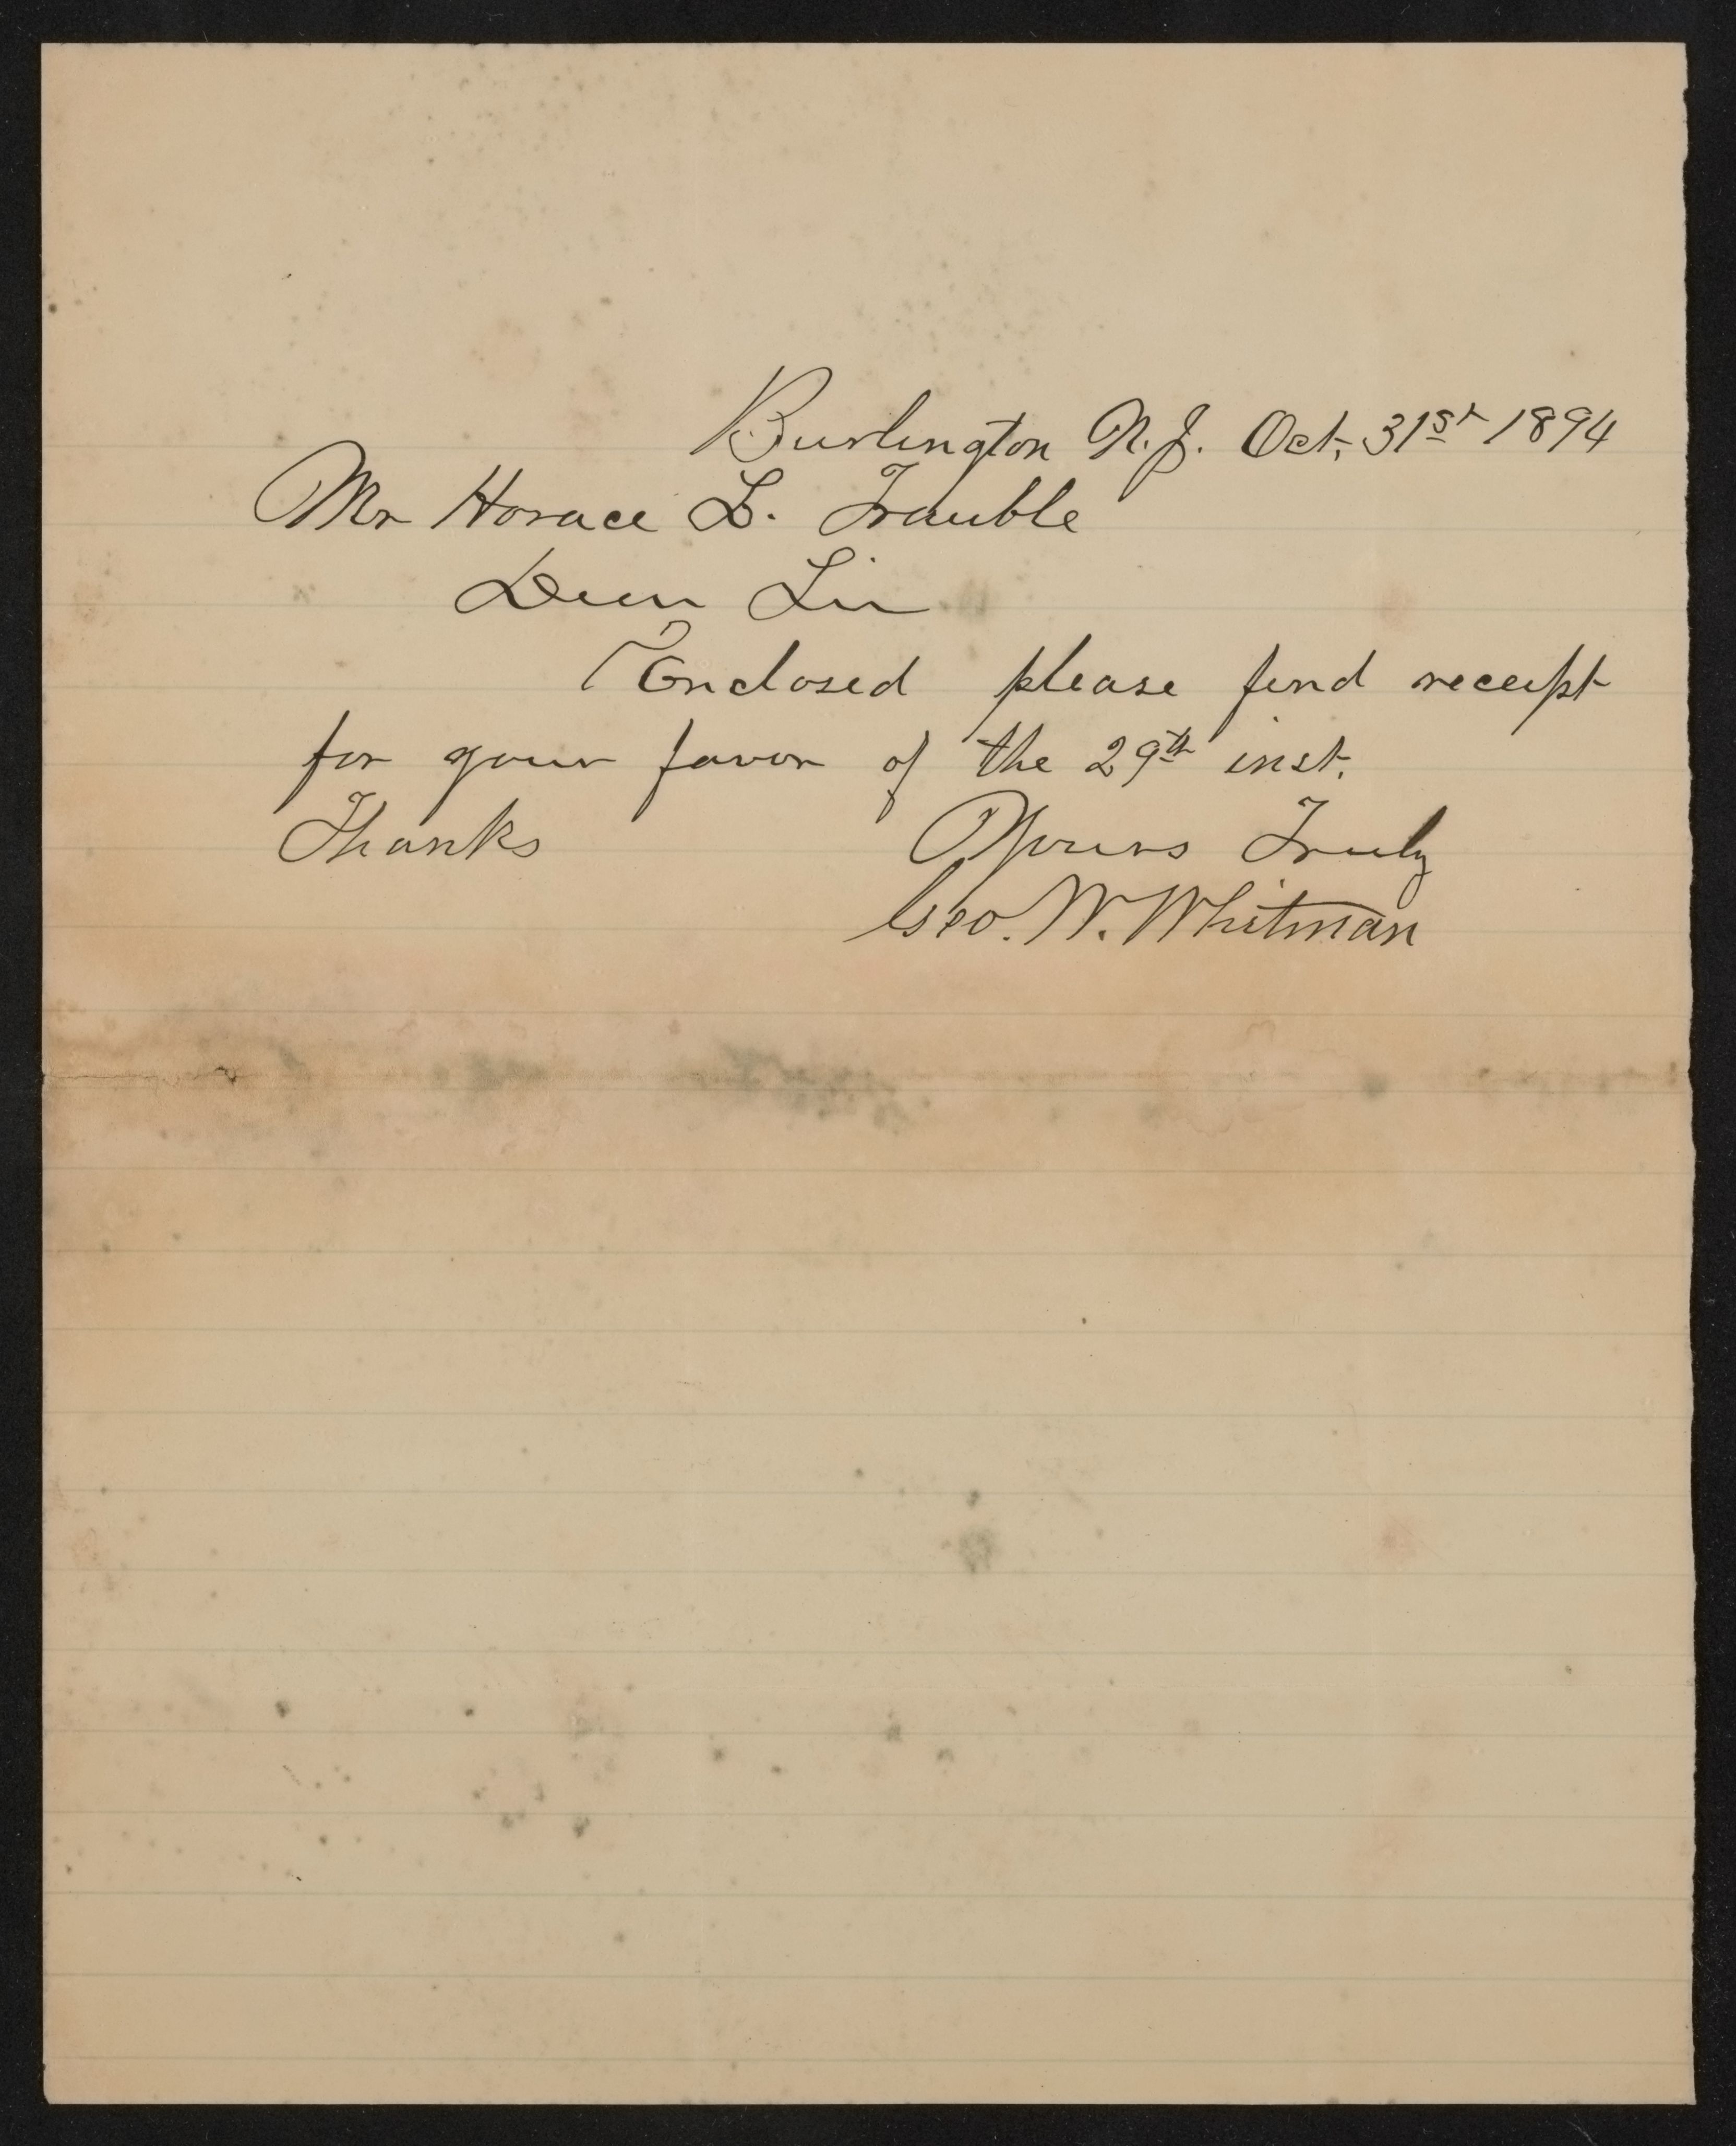 Burlington N.J. Oct. 31st 1894
Mr Horace L. Trauble
Dear Sir
Enclosed please find receipt
for your favor of the 29th inst.
Thanks Yours Truly
Geo. W. Whitman